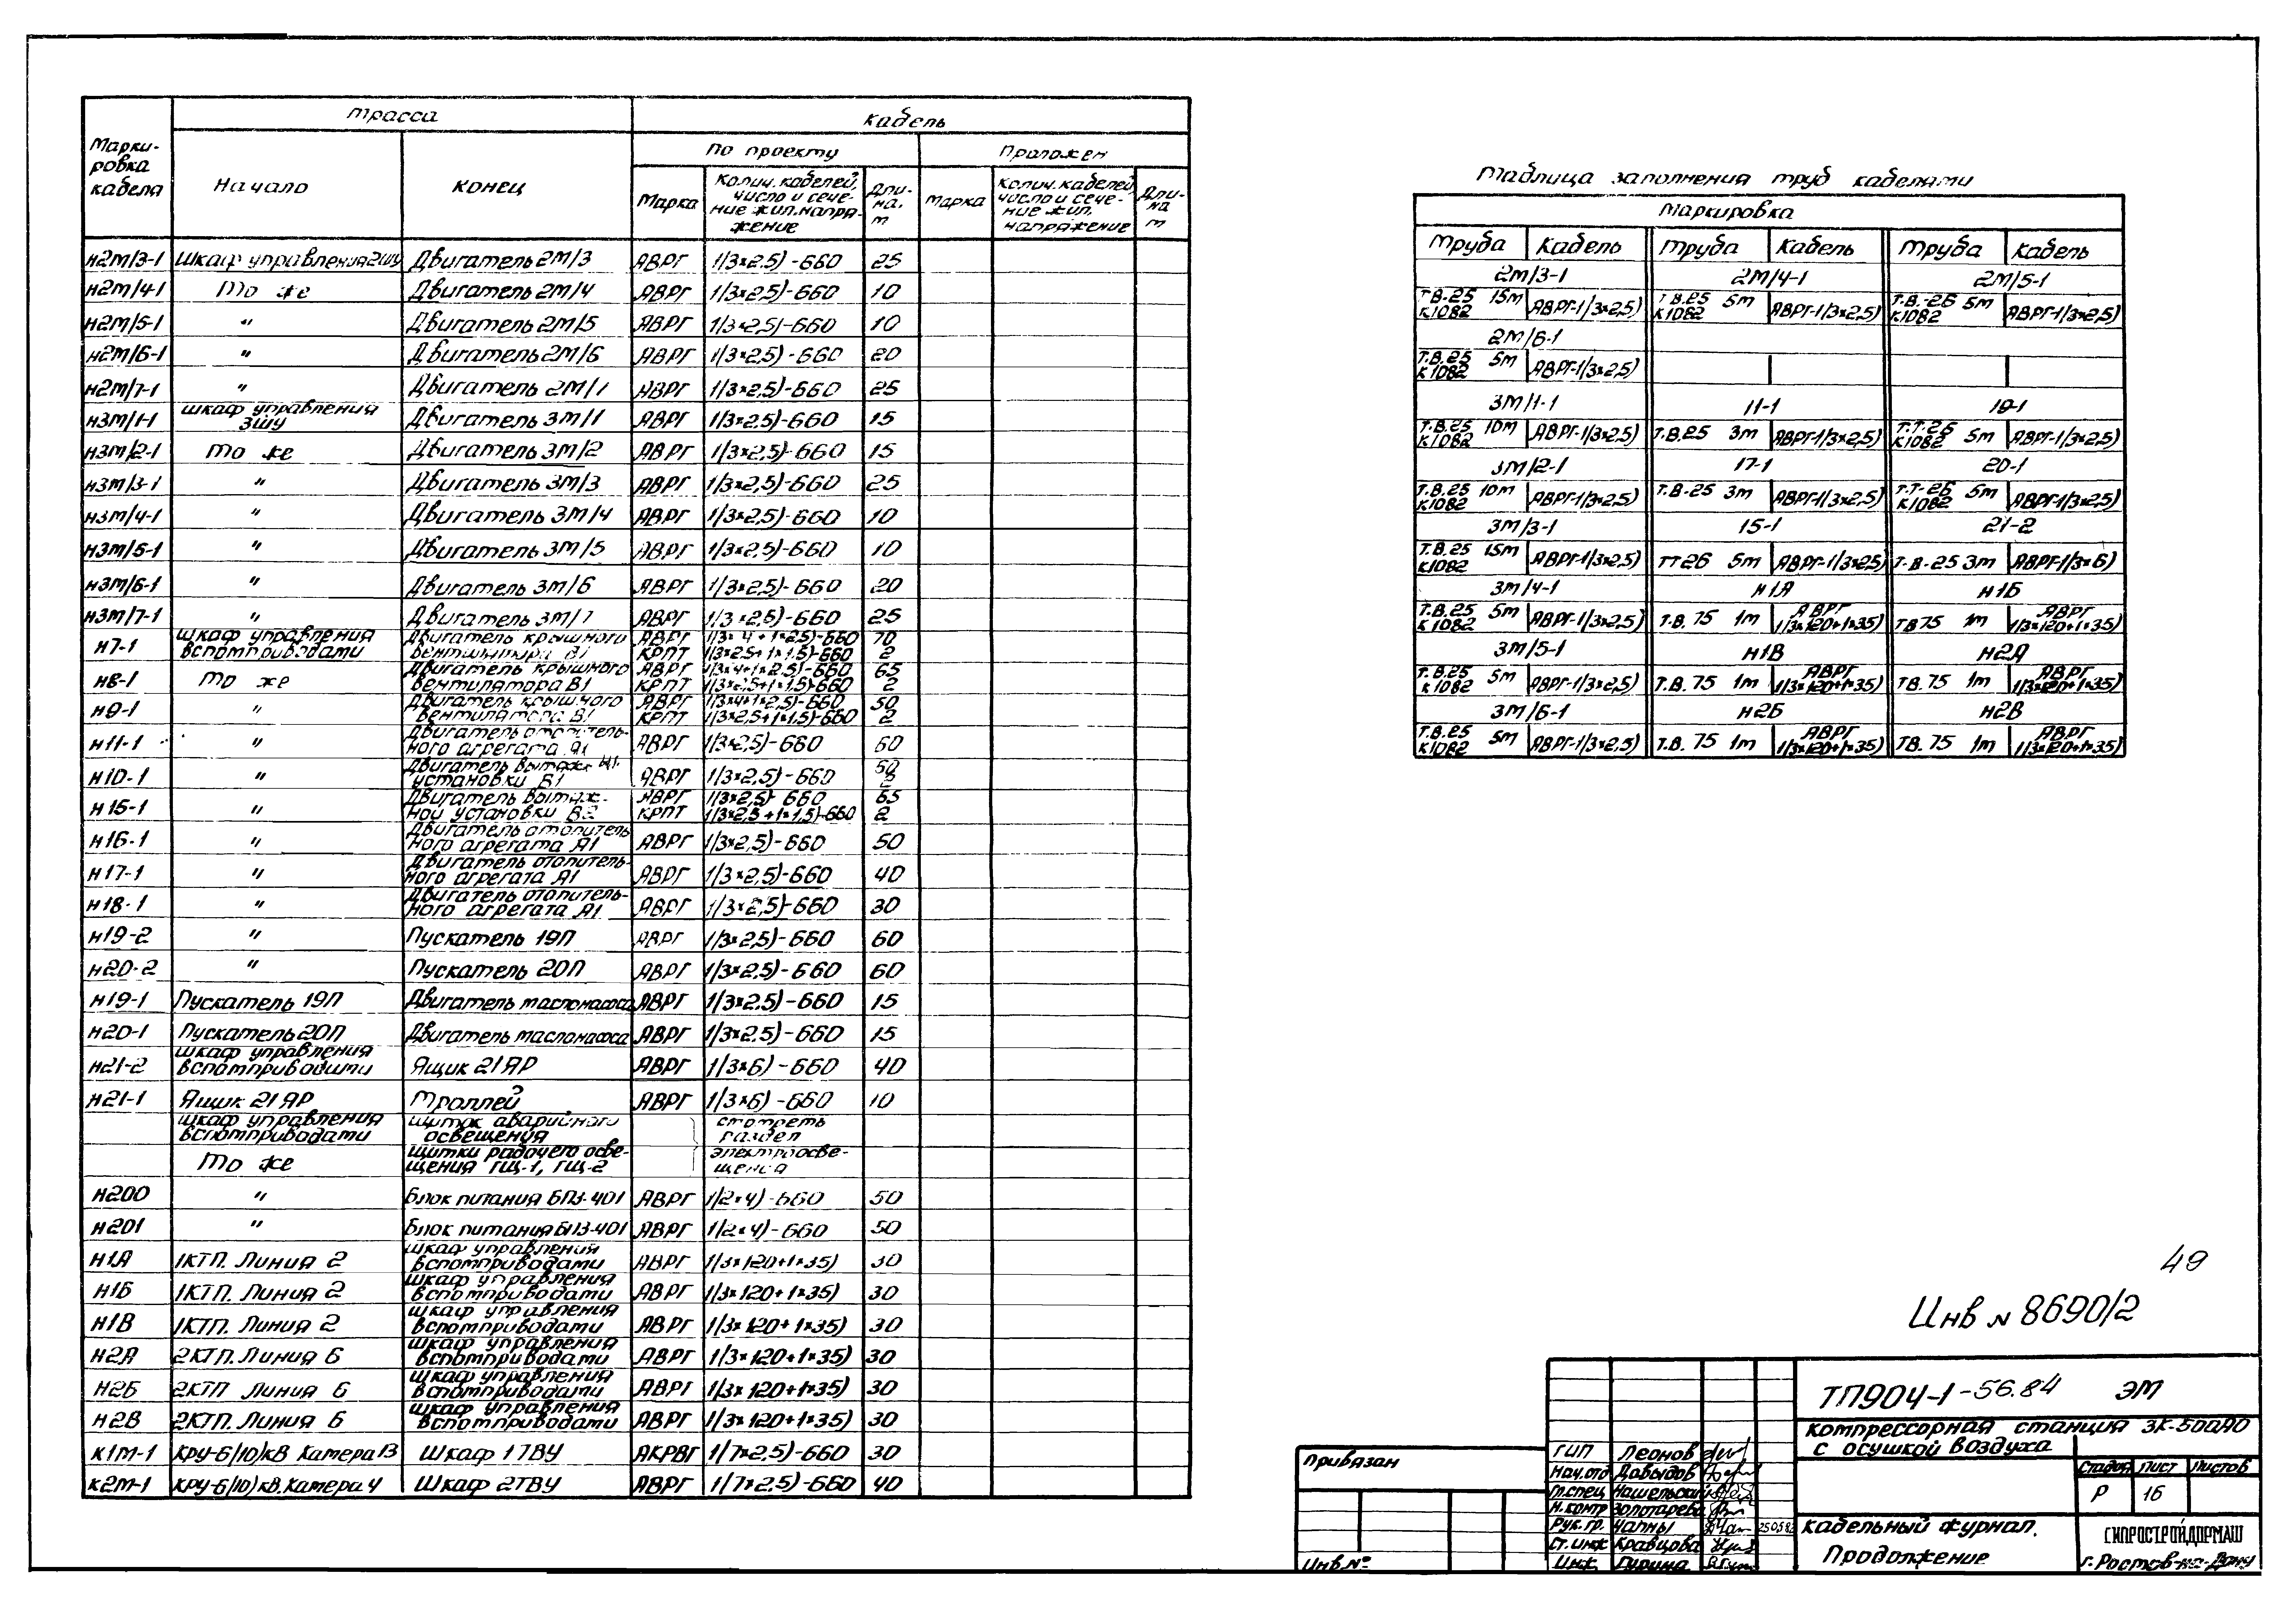 Марки-
ровка
кабеля
Трасса
Кабель
Начало
Конец
По проекту
Проложен
Марка
Колич. кабелей, число и сече-ние жил, напря-жение
Дли-на, м
Марка
Колич. кабелей, число и сече-ние жил, напряжение
Дли-на м
н2м/3-1 Шкаф управления 2ШУ Двигатель 2М/3 АВРГ 1/3×2,5)-660 25
н2м/4-1 То же Двигатель 2М/4 АВРГ 1/3×2,5)-660 10
н2м/5-1 " Двигатель 2М/5 АВРГ 1/3×2,5)-660 10
н2м/6-1 " Двигатель 2М/6 АВРГ 1/3×2,5)-660 20
н2м/7-1 " Двигатель 2М/7 АВРГ 1/3×2,5)-660 25
н3м/1-1 Шкаф управления 3ШУ Двигатель 3М/1 АВРГ 1/3×2,5)-660 15
н3м/2-1 То же Двигатель 3М/2 АВРГ 1/3×2,5)-660 15
н3м/3-1 " Двигатель 3М/3 АВРГ 1/3×2,5)-660 25
н3м/4-1 " Двигатель 3М/4 АВРГ 1/3×2,5)-660 10
н3м/5-1 " Двигатель 3М/5 АВРГ 1/3×2,5)-660 10
н3м/6-1 " Двигатель 3М/6 АВРГ 1/3×2,5)-660 20
н3м/7-1 " Двигатель 3М/7 АВРГ 1/3×2,5)-660 25
н7-1 Шкаф управления Двигатель крышного АВРГ 1/3×4+1×2,5)-660 70
вспомприводами вентилятора В1 КРПТ 1/3×2,5+1×1,5)-660 2
н8-1 То же Двигатель крышного АВРГ 1/3×4+1×2,5)-660 65
вентилятора В1 КРПТ 1/3×2,5+1×1,5)-660 2
н9-1 " Двигатель крышного АВРГ 1/3×4+1×2,5)-660 50
вентилятора В1 КРПТ 1/3×2,5+1×1,5)-660 2
н11-1 " Двигатель отопитель-
ного агрегата А1 АВРГ 1/3×2,5)-660 60
н10-1 " Двигатель вытяжн. 50
установки В1 АВРГ 1/3×2,5)-660 2
н15-1 " Двигатель вытяж- АВРГ 1/3×2,5)-660 65
ной установки В2 КРПТ 1/3×2,5+1×1,5)-660 2
н16-1 " Двигатель отопитель
ного агрегата А1 АВРГ 1/3×2,5)-660 50
н17-1 " Двигатель отопитель-
ного агрегата А1 АВРГ 1/3×2,5)-660 40
н18-1 " Двигатель отопитель-
ного агрегата А1 АВРГ 1/3×2,5)-660 30
н19-2 " Пускатель 19П АВРГ 1/3×2,5)-660 60
н20-2 " Пускатель 20П АВРГ 1/3×2,5)-660 60
н19-1 Пускатель 19П Двигатель маслонасоса АВРГ 1/3×2,5)-660 15
н20-1 Пускатель 20П Двигатель маслонасоса АВРГ 1/3×2,5)-660 15
н21-2 Шкаф управления вспомприводами Ящик 21ЯР АВРГ 1/3×6)-660 40
н21-1 Ящик 21ЯР Троллей АВРГ 1/3×6)-660 10
Шкаф управления Щиток аварийного смотреть
вспомприводами освещения раздел
То же Щитки рабочего осве- электроосве-
щения ГЩ-1, ГЩ-2 щения
н200 " Блок питания БПЗ-401 АВРГ 1/2×4)-660 50
н201 " Блок питания БПЗ-401 АВРГ 1/2×4)-660 50
н1А 1КТП. Линия 2 Шкаф управления вспомприводами АВРГ 1/3×120+1×35) 30
н1Б 1КТП. Линия 2 Шкаф управления вспомприводами АВРГ 1/3×120+1×35) 30
н1В 1КТП. Линия 2 Шкаф управления вспомприводами АВРГ 1/3×120+1×35) 30
н2А 2КТП. Линия 6 Шкаф управления вспомприводами АВРГ 1/3×120+1×35) 30
н2Б 2КТП Линия 6 Шкаф управления вспомприводами АВРГ 1/3×120+1×35) 30
н2В 2КТП. Линия 6 Шкаф управления вспомприводами АВРГ 1/3×120+1×35) 30
к1м-1 КРУ-6/10)кВ Камера 13 Шкаф 1ТВУ АКРВГ 1/7×2,5)-660 30
к2м-1 КРУ-6/10)кВ. Камера 4 Шкаф 2ТВУ АВРГ 1/7×2,5)-660 40
Таблица заполнения труб кабелями
Маркировка
Труба Кабель Труба Кабель Труба Кабель
2М/3-1 2М/4-1 2М/5-1
Т.В.25 К1082 15м АВРГ-1/3×2,5) Т.В.25 К1082 5м АВРГ-1/3×2,5) Т.В.-25 К1082 5м АВРГ-1/3×2,5)
2М/6-1
Т.В.25 К1082 5м АВРГ-1/3×2,5)
3М/1-1 11-1 19-1
Т.В.25 К1082 10м АВРГ-1/3×2,5) Т.В.25 3м АВРГ-1/3×2,5) Т.Т.25 К1082 5м АВРГ-1/3×2,5)
3М/2-1 17-1 20-1
Т.В.25 К1082 10м АВРГ-1/3×2,5) Т.В-25 3м АВРГ-1/3×2,5) Т.Т-26 К1082 5м АВРГ-1/3×2,5)
3М/3-1 15-1 21-2
Т.В.25 К1082 15м АВРГ-1/3×2,5) ТТ26 5м АВРГ-1/3×2,5) Т.В-25 3м АВРГ-1/3×6)
3М/4-1 н1А н1Б
Т.В.25 К1082 5м АВРГ-1/3×2,5) Т.В.75 1м АВРГ 1/3×120+1×35) ТВ75 1м АВРГ 1/3×120+1×35)
3М/5-1 н1В н2А
Т.В.25 К1082 5м АВРГ-1/3×2,5) Т.В.75 1м АВРГ 1/3×120+1×35) ТВ.75 1м АВРГ 1/3×120+1×35)
3М/6-1 н2Б н2В
Т.В.25 К1082 5м АВРГ-1/3×2,5) Т.В.75 1м АВРГ 1/3×120+1×35) ТВ.75 1м АВРГ 1/3×120+1×35)
49
Инв N 8690/2
Привязан
Инв №
ГИП Леонов
Нач.отд Давыдов
Гл.спец Нашельский
Н.контр Золотарева
Рук.гр. Чапны
Ст.инж Кравцова
Инж. Гурина
ТП904-1-56.84 ЭМ
Компрессорная станция 3К-500А0
с осушкой воздуха
Стадия Лист Листов
Р 16
Кабельный журнал.
Продолжение
ГИПРОСТРОЙДОРМАШ
г. Ростов-на-Дону